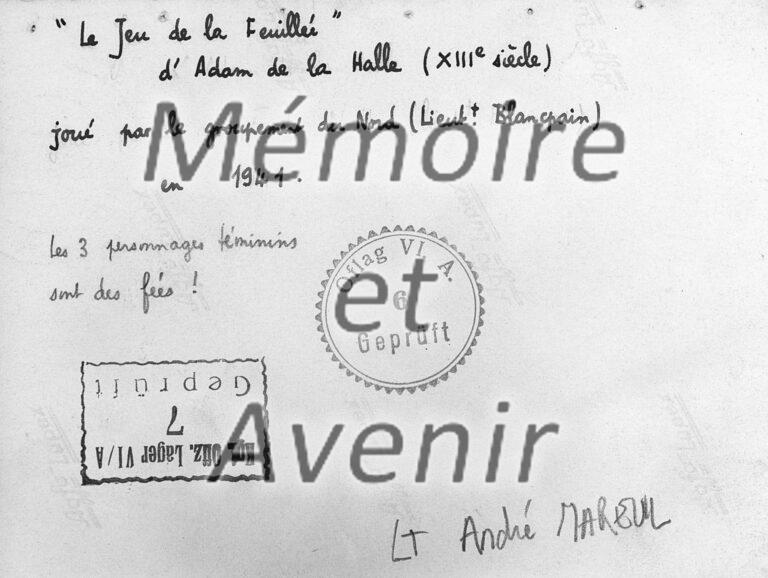 "Le Jeu de la Feuillée"
d'Adam de la Halle (XIIIe siècle)
joué par le groupement du Nord (Lieutt Blancpain)
en 1941.
Les 3 personnages féminins
sont des fées !
Mémoire
et
Avenir
Oflag VI A.
6
Geprüft
Geprüft
7
Offz. Lager VI/A
Lt André MAREUIL